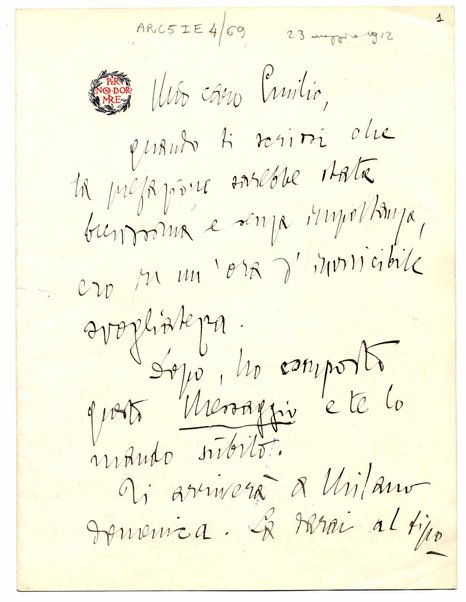 1
ARC5 IE 4/69
23 maggio 1912
PER
NON DOR
MIRE
Mio caro Emilio,
quando ti scrissi che
la prefazione sarebbe stata
brevissima e senza importanza,
ero in un'ora d'invincibile
svogliatezza.
Dopo, ho composto
questo Messaggio e te lo
mando sùbito.
Ti arriverà a Milano
domenica. La darai al tipo